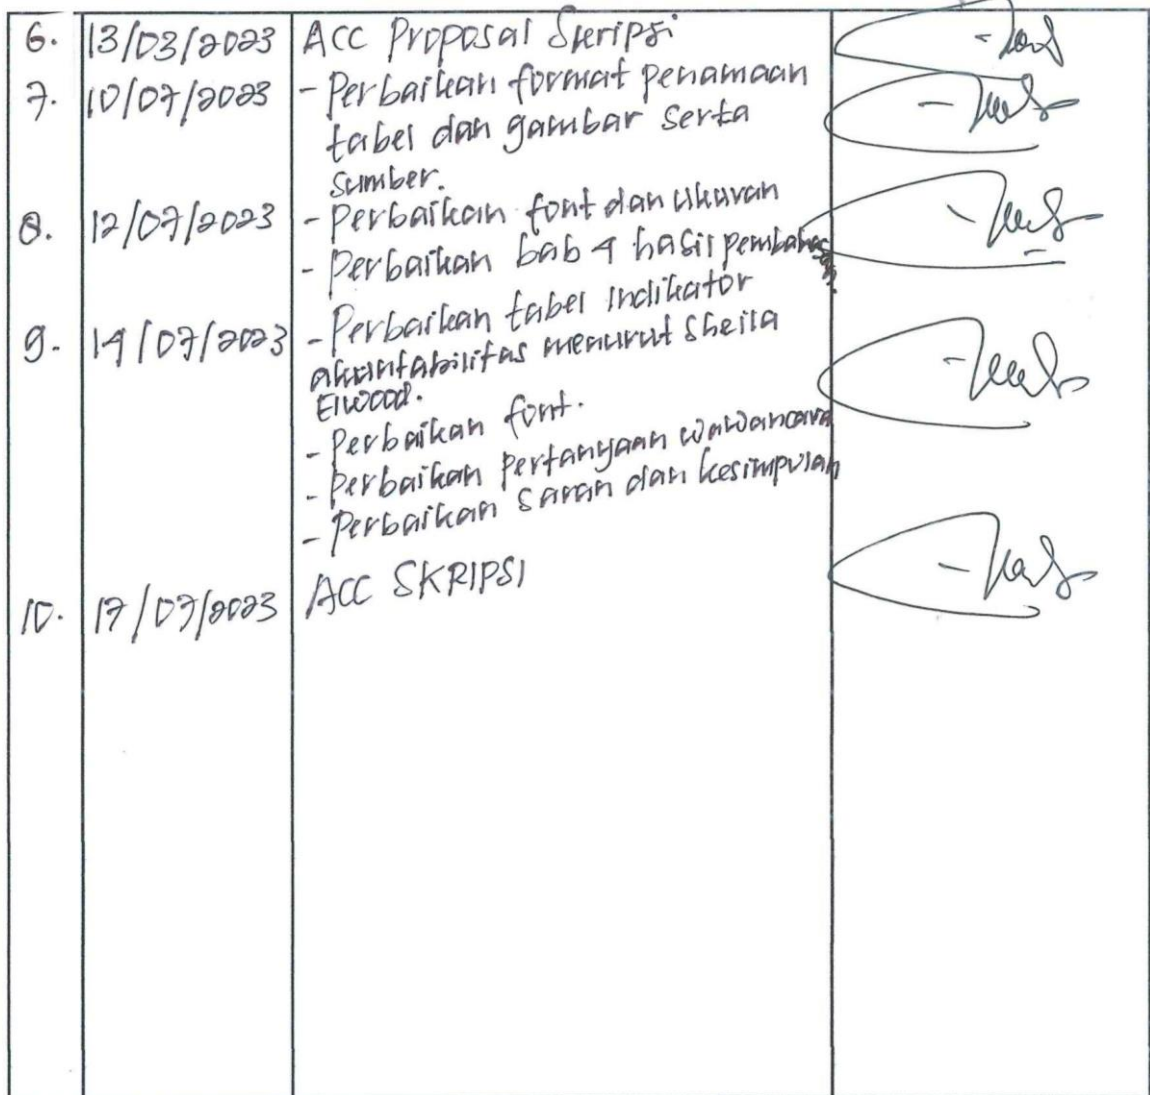 6. 13/03/2023 Acc Proposal Skripsi
7. 10/07/2023 - Perbaikan format penamaan
tabel dan gambar serta
sumber.
8. 12/07/2023 - Perbaikan font dan ukuran
- Perbaikan bab 4 hasil pembahasan
9. 14/07/2023 - Perbaikan tabel indikator
akuntabilitas menurut Sheila
Elwood.
- Perbaikan font.
- Perbaikan Pertanyaan wawancara
- Perbaikan saran dan kesimpulan
10. 17/07/2023 ACC SKRIPSI